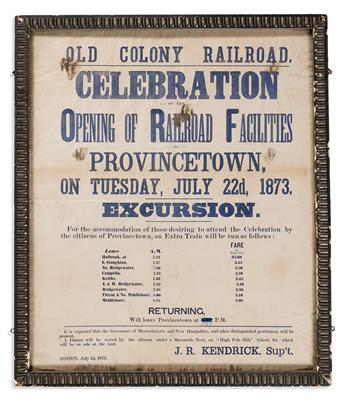 OLD COLONY RAILROAD.
CELEBRATION
OF THE
OPENING OF RAILROAD FACILITIES
TO
PROVINCETOWN,
ON TUESDAY, JULY 22d, 1873.
EXCURSION.
For the accommodation of those desiring to attend the Celebration by
the citizens of Provincetown, an Extra Train will be run as follows:
FARE
Leave A.M.
Holbrook, at 7.12 $3.60
E. Stoughton, 7.27
No. Bridgewater, 7.30
Campello, 7.33
Keiths,
E. & W. Bridgewater,
Bridgewater,
Titicut & No. Middleboro',
Middleboro',
RETURNING,
Will leave Provincetown at P.M.
It is expected that the Governors of Massachusetts and New Hampshire, and other distinguished gentlemen, will be
present.
A Dinner will be served by the citizens under a Mammoth Tent, on "High Pole Hill," tickets for which
will be on sale at the tent.
J. R. KENDRICK, Sup't.
BOSTON, July 15, 1873.